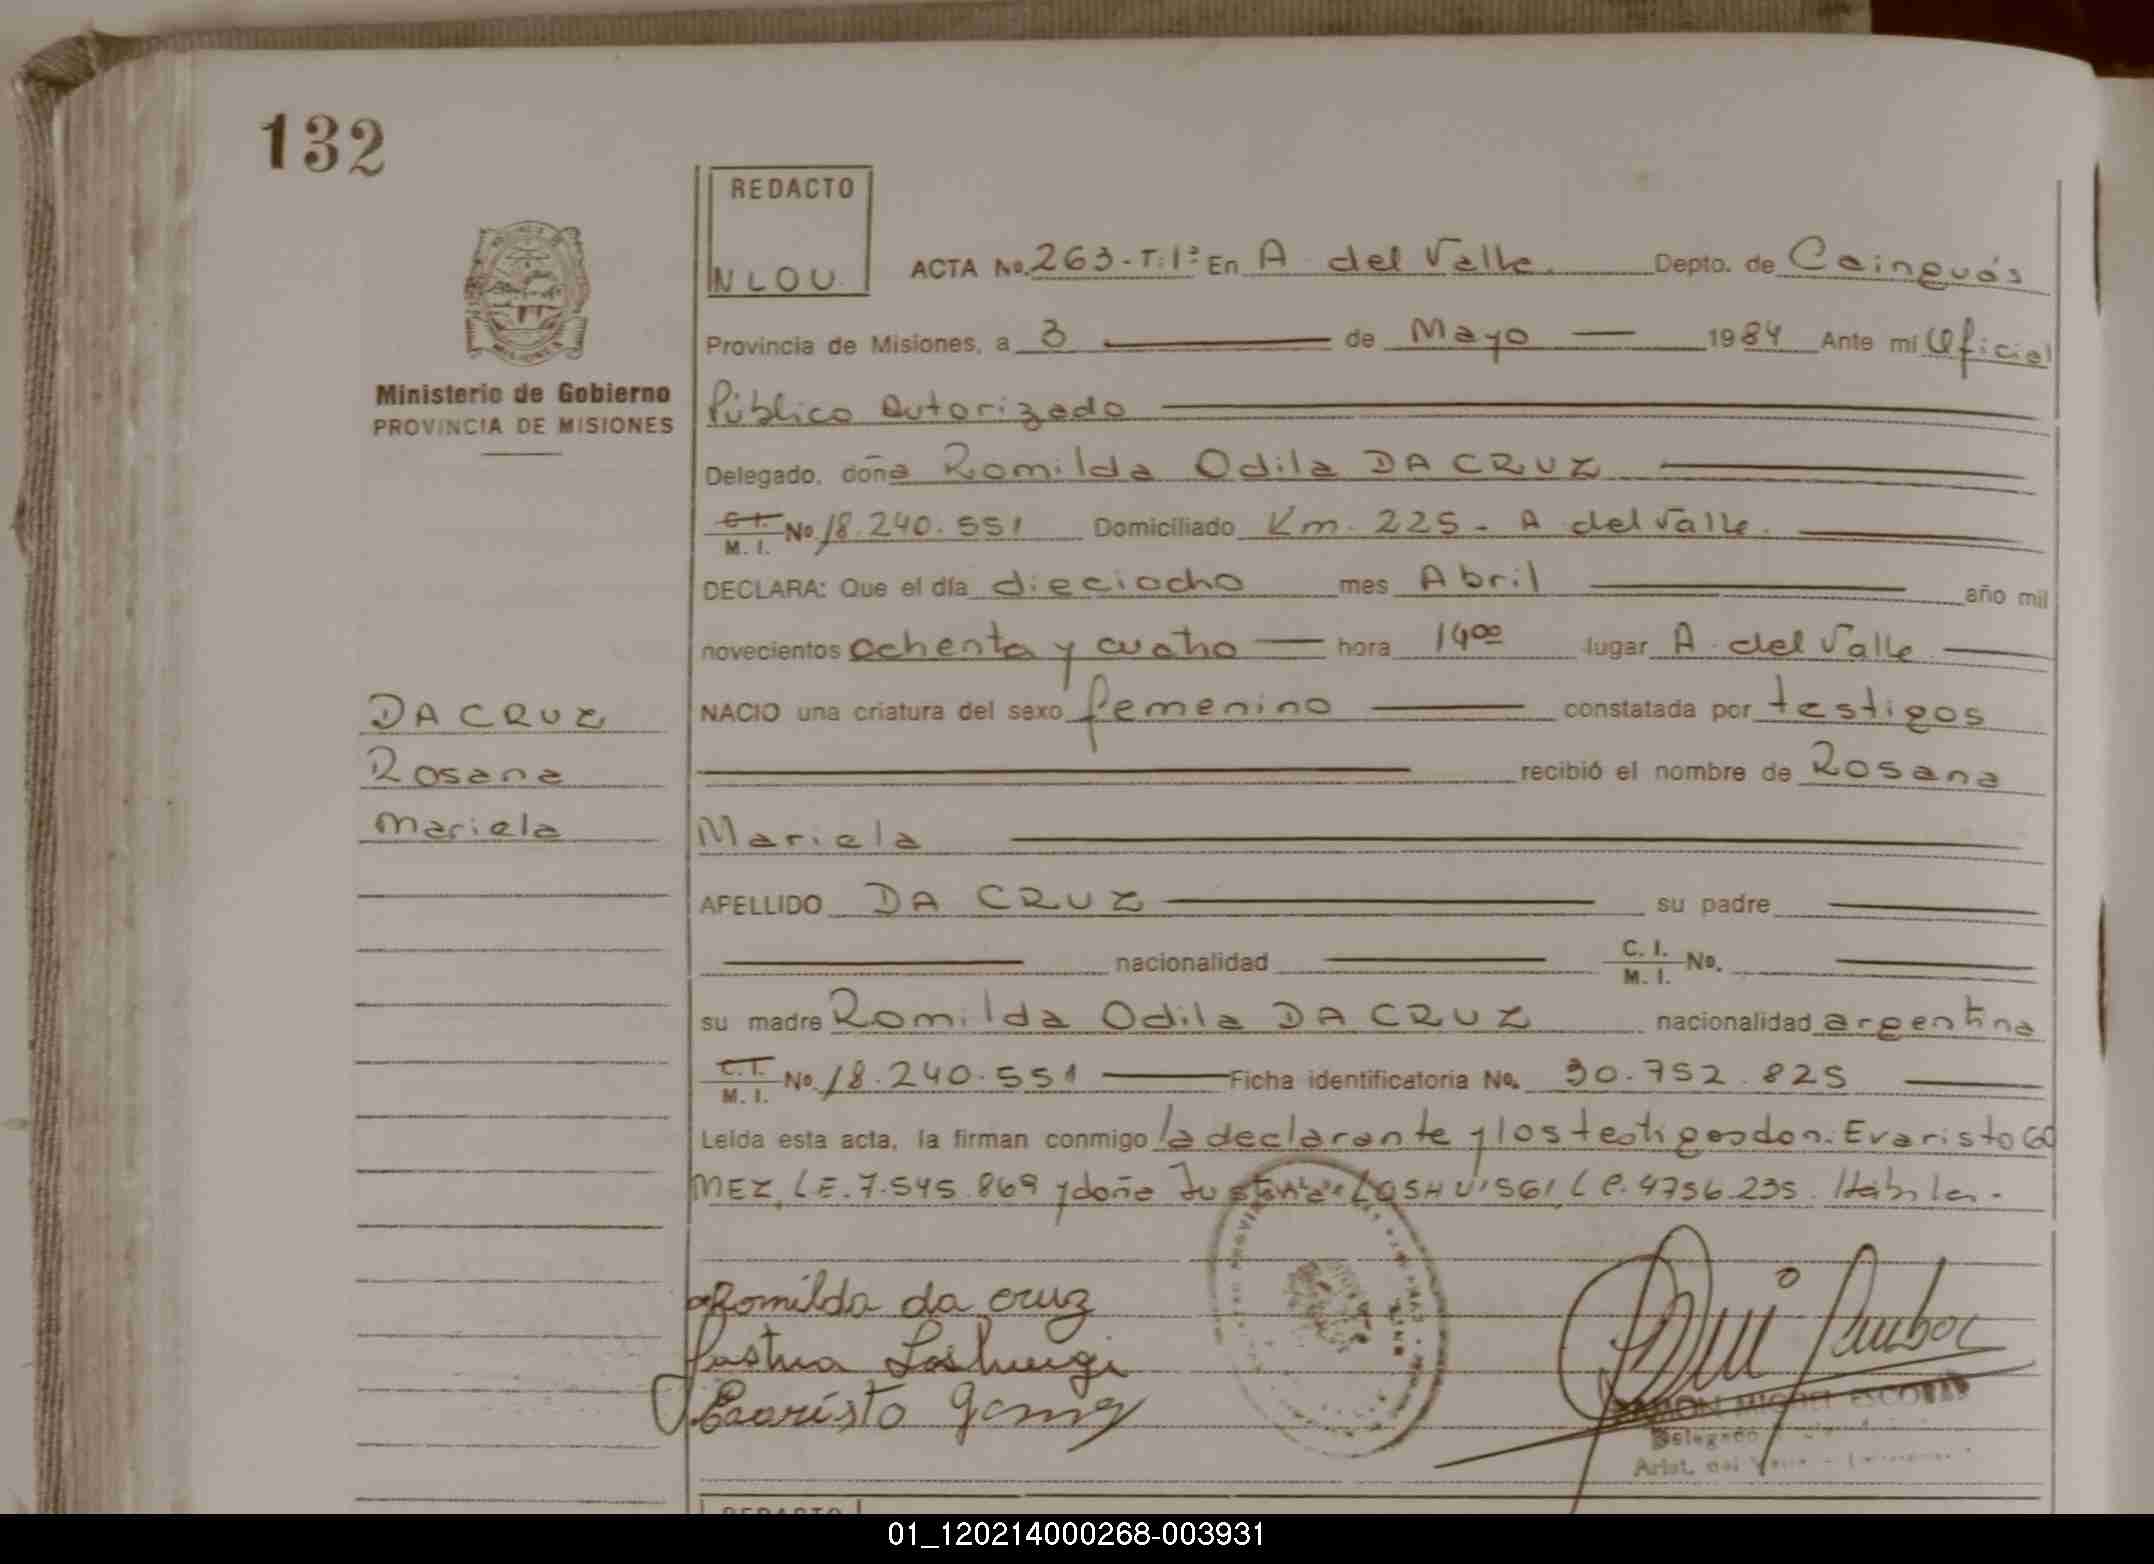 132
REDACTO
N L O U.
ACTA No. 263-T:1ª En A. del Valle. Depto. de Cainguás
Provincia de Misiones, a 3 de Mayo 1984 Ante mí Oficial
Ministerio de Gobierno
PROVINCIA DE MISIONES
Público autorizado
Delegado, doña Romilda Odila DA CRUZ
C.I. M. I. No. 18.240.551 Domiciliado Km. 225 - A del Valle.
DECLARA: Que el día dieciocho mes Abril año mil
novecientos ochenta y cuatro hora 14ºº lugar A. del Valle
DA CRUZ
Rosana
Mariela
NACIO una criatura del sexo femenino constatada por testigos
recibió el nombre de Rosana
Mariela
APELLIDO DA CRUZ su padre
nacionalidad C. I. M. I. No.
su madre Romilda Odila DA CRUZ nacionalidad argentina
C.I. M. I. No. 18.240.551 Ficha identificatoria No. 30.752.825
Leída esta acta, la firman conmigo la declarante y los testigos don: Evaristo GO
MEZ, LE. 7.545.869 y doña LC. 4756.235. Hábiles.
Romilda da cruz
Evaristo Gomez
RAMON MIGUEL ESCOBAR
Delegado
Arist. del Valle
REDACTO
01_120214000268-003931